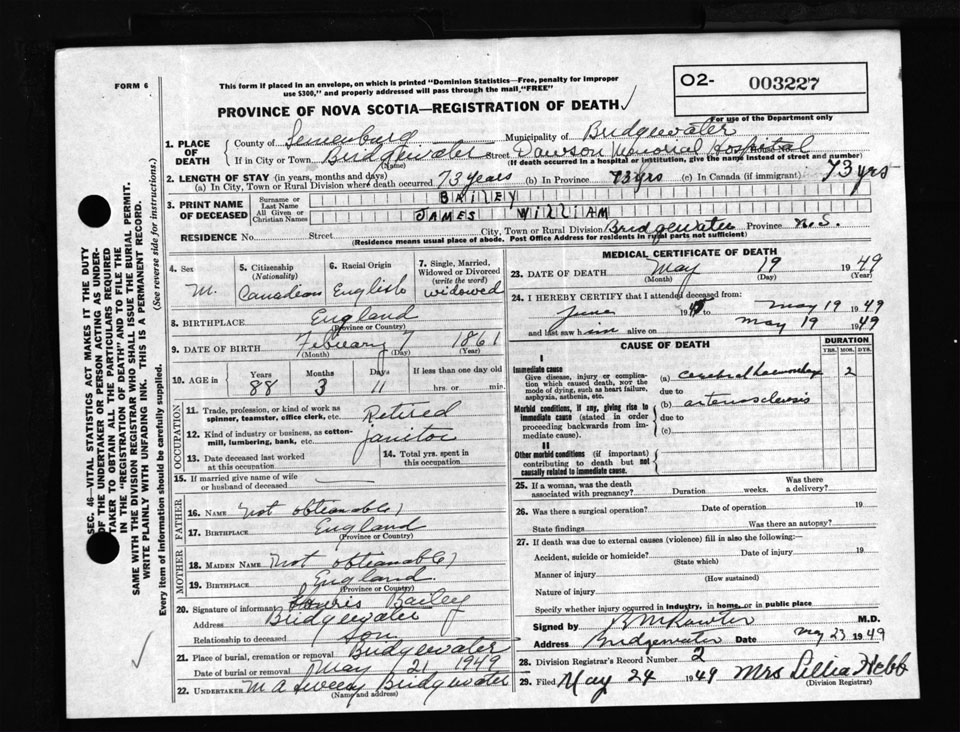 FORM 6
This form if placed in an envelope, on which is printed "Dominion Statistics—Free, penalty for improper
use $300," and properly addressed will pass through the mail "FREE"
O2- 003227
For use of the Department only
PROVINCE OF NOVA SCOTIA—REGISTRATION OF DEATH ✓
1. PLACE OF DEATH
County of Lunenburg Municipality of Bridgewater
If in City or Town Bridgewater Street Dawson Memorial Hospital House No.
(Name) (If death occurred in a hospital or institution, give the name instead of street and number)
2. LENGTH OF STAY (in years, months and days)
(a) In City, Town or Rural Division where death occurred 73 years (b) In Province 73 yrs (c) In Canada (if immigrant) 73 yrs
3. PRINT NAME OF DECEASED
Surname or Last Name BAILEY
All Given or Christian Names JAMES WILLIAM
RESIDENCE No. Street City, Town or Rural Division Bridgewater Province N.S.
(Residence means usual place of abode. Post Office Address for residents in rural parts not sufficient)
4. Sex M.
5. Citizenship (Nationality) Canadian
6. Racial Origin English
7. Single, Married, Widowed or Divorced (write the word) widowed
8. BIRTHPLACE England
(Province or Country)
9. DATE OF BIRTH Febuary 7 1861
(Month) (Day) (Year)
10. AGE in Years 88 Months 3 Days 11 If less than one day old
hrs. or min.
OCCUPATION
11. Trade, profession, or kind of work as spinner, teamster, office clerk, etc. Retired
12. Kind of industry or business, as cotton-mill, lumbering, bank, etc. Janitor
13. Date deceased last worked at this occupation
14. Total yrs. spent in this occupation
15. If married give name of wife or husband of deceased —
FATHER
16. NAME Not obtianable
17. BIRTHPLACE England
(Province or Country)
MOTHER
18. MAIDEN NAME Not obtianable
19. BIRTHPLACE England
(Province or Country)
20. Signature of informant Bailey
Address Bridgewater
Relationship to deceased son
21. Place of burial, cremation or removal Bridgewater
Date of burial or removal May 21 1949
22. UNDERTAKER M A Bridgewater
(Name and address)
MEDICAL CERTIFICATE OF DEATH
23. DATE OF DEATH May 19 1949
(Month) (Day) (Year)
24. I HEREBY CERTIFY that I attended deceased from:
June 19 to May 19 1949
and last saw him alive on May 19 1949
CAUSE OF DEATH
DURATION
YRS. MOS. DYS.
I
Immediate cause
Give disease, injury or complication which caused death, NOT the mode of dying, such as heart failure, asphyxia, asthenia, etc.
(a) cerebral 2
due to
Morbid conditions, if any, giving rise to immediate cause (stated in order proceeding backwards from immediate cause).
(b) arteriosclerosis
due to
(c)
II
Other morbid conditions (if important) contributing to death but not causally related to immediate cause.
25. If a woman, was the death associated with pregnancy? Duration weeks. Was there a delivery?
26. Was there a surgical operation? Date of operation 19
State findings Was there an autopsy?
27. If death was due to external causes (violence) fill in also the following:—
Accident, suicide or homicide? Date of injury 19
(State which)
Manner of injury
(How sustained)
Nature of injury
Specify whether injury occurred in industry, in home, or in public place
Signed by M.D.
Address Bridgewater Date May 23 1949
28. Division Registrar's Record Number 2
29. Filed May 24 1949 Mrs Lillia Hebb
(Division Registrar)
SEC. 46—VITAL STATISTICS ACT MAKES IT THE DUTY
OF THE UNDERTAKER OR PERSON ACTING AS UNDERTAKER
TO OBTAIN ALL THE PARTICULARS REQUIRED
IN THE "REGISTRATION OF DEATH" AND TO FILE THE
SAME WITH THE DIVISION REGISTRAR WHO SHALL ISSUE THE BURIAL PERMIT.
WRITE PLAINLY WITH UNFADING INK. THIS IS A PERMANENT RECORD.
Every item of information should be carefully supplied. (See reverse side for instructions.)